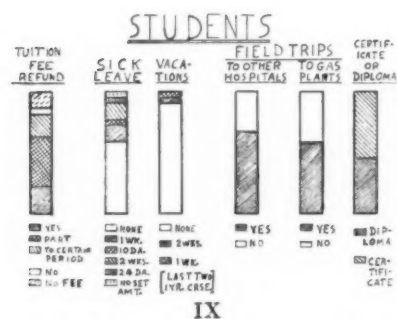 STUDENTS
TUITION
FEE
REFUND
SICK
LEAVE
VACA-
TIONS
FIELD TRIPS
TO OTHER
HOSPITALS
TO GAS
PLANTS
CERTIF-
ICATE
OR
DIPLOMA
YES
PART
TO CERTAIN
PERIOD
NO
NO FEE
NONE
1 WK.
10 DA.
2 WKS.
24 DA.
NO SET
AMT.
NONE
2 WKS.
1 WK.
[LAST TWO
1 YR. CRSE]
YES
NO
YES
NO
DIP-
LOMA
CERTI-
FICATE
IX